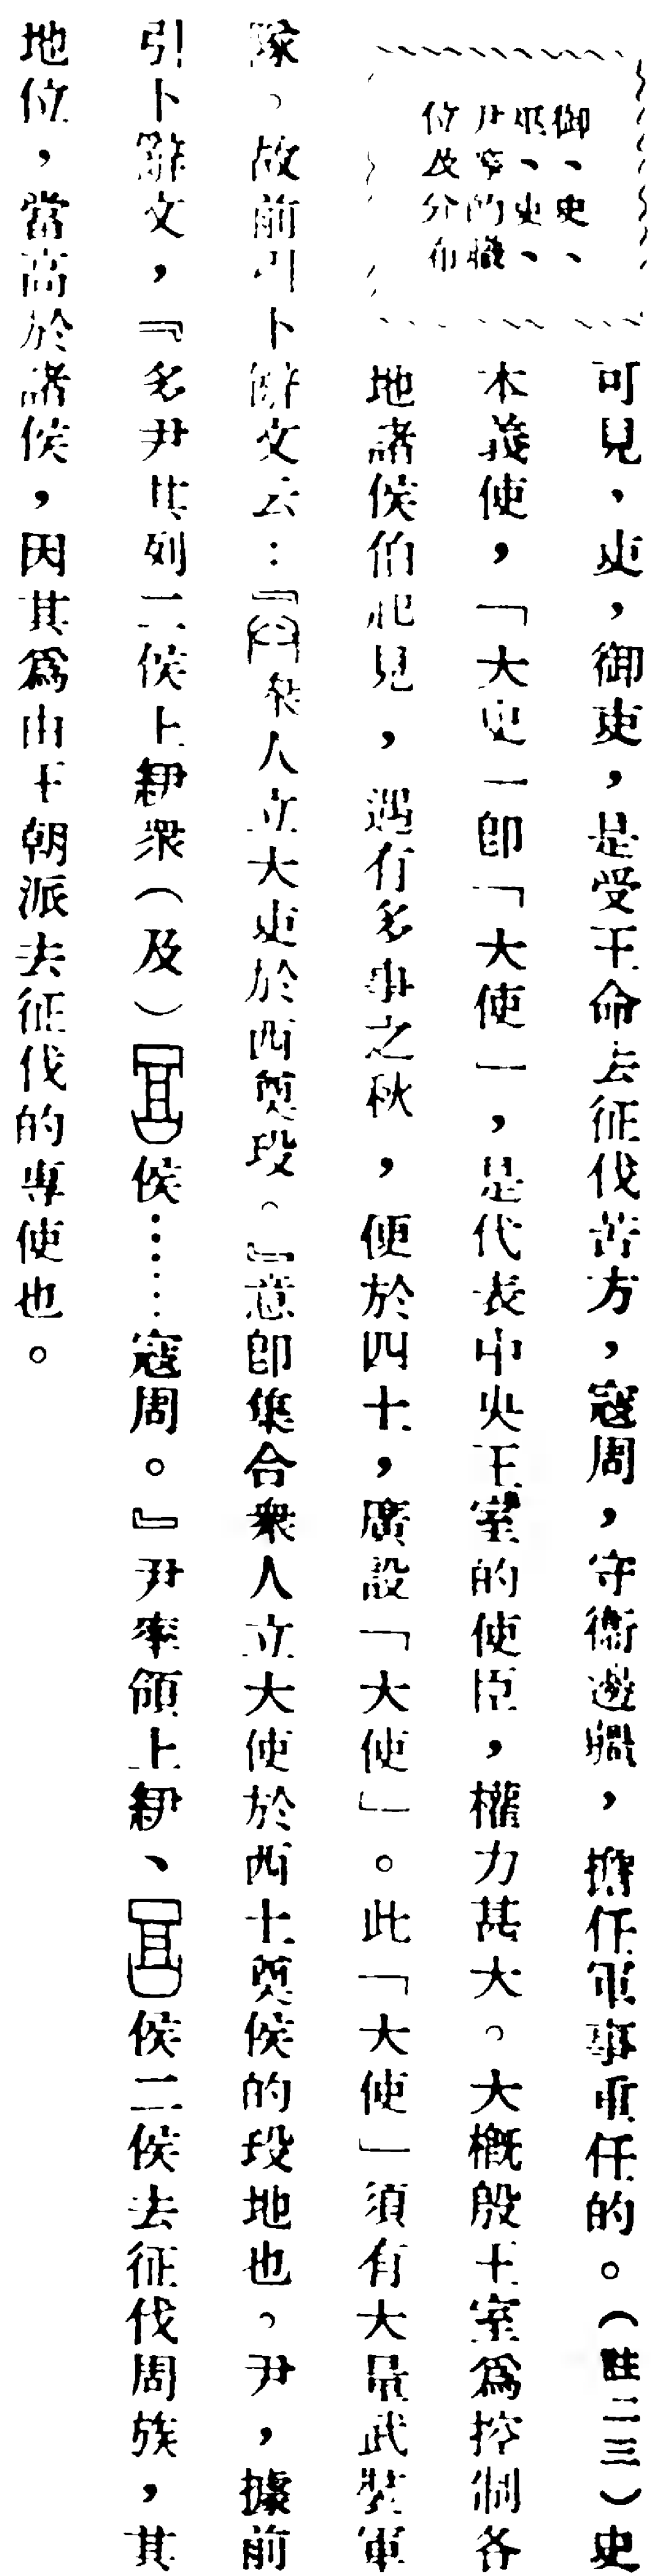 御、史、
吏、吏、
尹等的職
位及分布
可見,吏,御吏,是受王命去征伐苦方,寇周,守衛邊疆,擔任軍事重任的。(註二三)史
本義使,「大史」即「大使」,是代表中央王室的使臣,權力甚大。大概殷王室為控制各
地諸侯伯起見,遇有多事之秋,便於四土,廣設「大使」。此「大使」須有大量武裝軍
隊。故前引卜辭文云:『衆人立大吏於西奠役。』意即集合衆人立大使於西土奠侯的役地也。尹,據前
引卜辭文,『多尹其列二侯上絲衆(及)侯……寇周。』尹率領上絲、侯二侯去征伐周族,其
地位,當高於諸侯,因其為由王朝派去征伐的專使也。